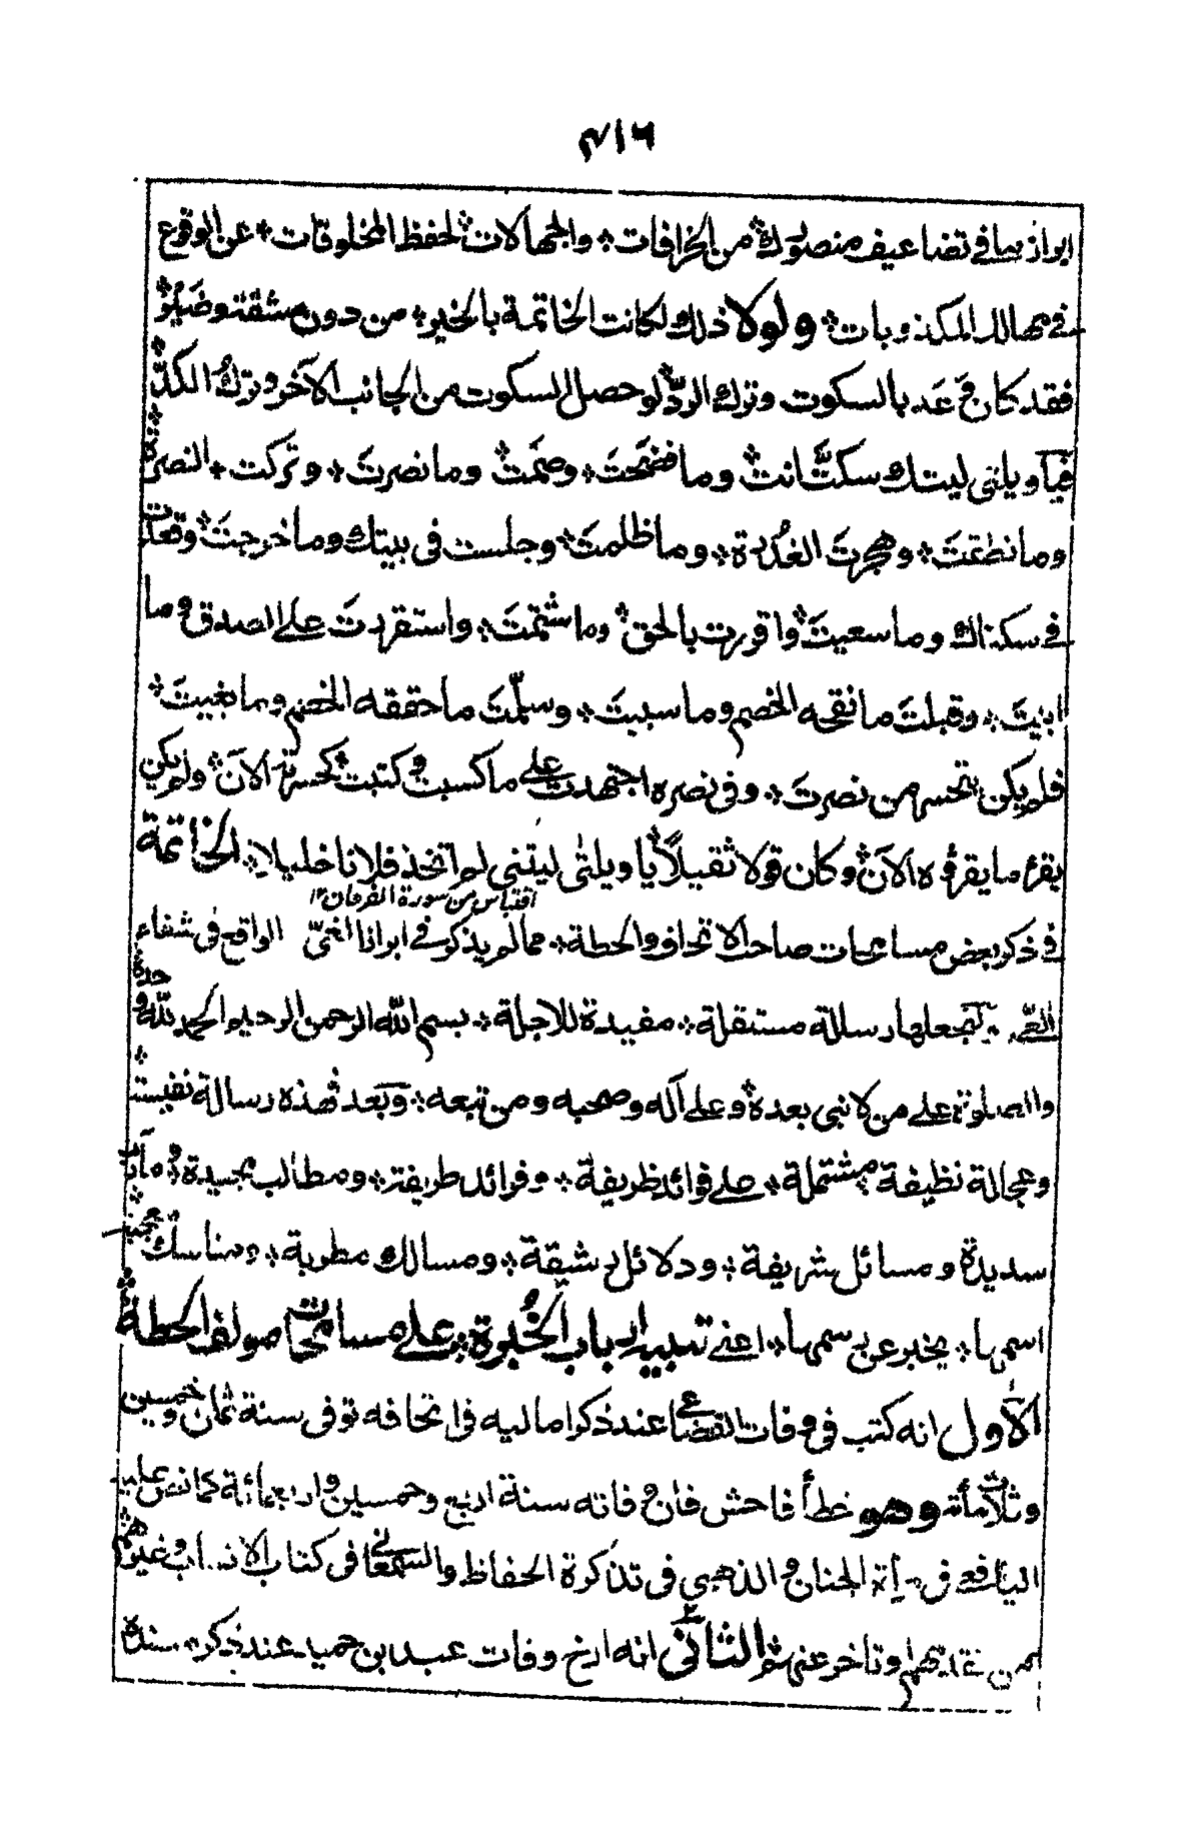 ٤١٦
ابراز ما في تضاعيف منصورك من الخرافات * والجهالات * لحفظ المخلوقات * عن الوقوع
في مهالك المكذوبات * ولولا ذلك لكانت الخاتمة بالخير * من دون مشقة وضير *
فقد كان وعد بالسكوت وترك الرد * لو حصل السكوت من الجانب الآخر وترك الكد *
فيا ويلتى ليتك سكتَّ انت * وما فضحت * وصمتَ * وما نصرتَ * وتركت * النصرة *
وما نطقتَ * وهجرتَ الغدرة * وما ظلمتَ * وجلست في بيتك وما خرجتَ * وقعدت
في سكناك وما سعيتَ * واقررت بالحق * وما شتمتَ * واستقررتَ على الصدق وما
ابيتَ * وقبلتَ ما نقحه الخصم وما سبيتَ * وسلّمتَ ما حققه الخصم وما بغيتَ *
فلم يكن يتحسر من نصرتَ * وفي نصره اجتهدت على ما كسبت وكتبت * كحسرته الآن * ولم يكن
يقرء ما يقرؤه الآن * وكان قولا ثقيلاً * يا ويلتى ليتني لم اتخذ فلانا خليلا * الخاتمة
اقتباس من سورة الفرقان ١٢
في ذكر بعض مسامحات صاحب الاتحاف والحطة * مما لم يذكر في ابراز الغيّ الواقع في شفاء
العيّ * نجعلها رسالة مستقلة * مفيدة للاجلة * بسم الله الرحمن الرحيم الحمد لله وحده
والصلوة على من لا نبي بعده * وعلى آله وصحبه ومن تبعه * وبعد فهذه رسالة نفيسة *
وعجالة نظيفة * مشتملة * على فوائد ظريفة * وفرائد طريفة * ومطالب مجيدة * ومآرب
سديدة ومسائل شريفة * ودلائل رشيقة * ومسالك مطربة * ومناسك معجبة *
اسمها * يخبر عن رسمها * اعني تنبيه ارباب الخبرة * على مسامحات مولف الحطة *
الاول انه كتب في وفات القضاعي عند ذكر اماليه في اتحافه توفى سنة ثمان وخمسين
وثلاثمأة وهو خطأ فاحش فان وفاته سنة اربع وخمسين واربعمائة كما نص عليه
اليافعي في مرآة الجنان والذهبي في تذكرة الحفاظ والسمعاني في كتاب الانساب وغيرهم
ممن تقدمهم وتاخر عنهم الثاني انه ارخ وفات عبد بن حميد عند ذكر مسنده